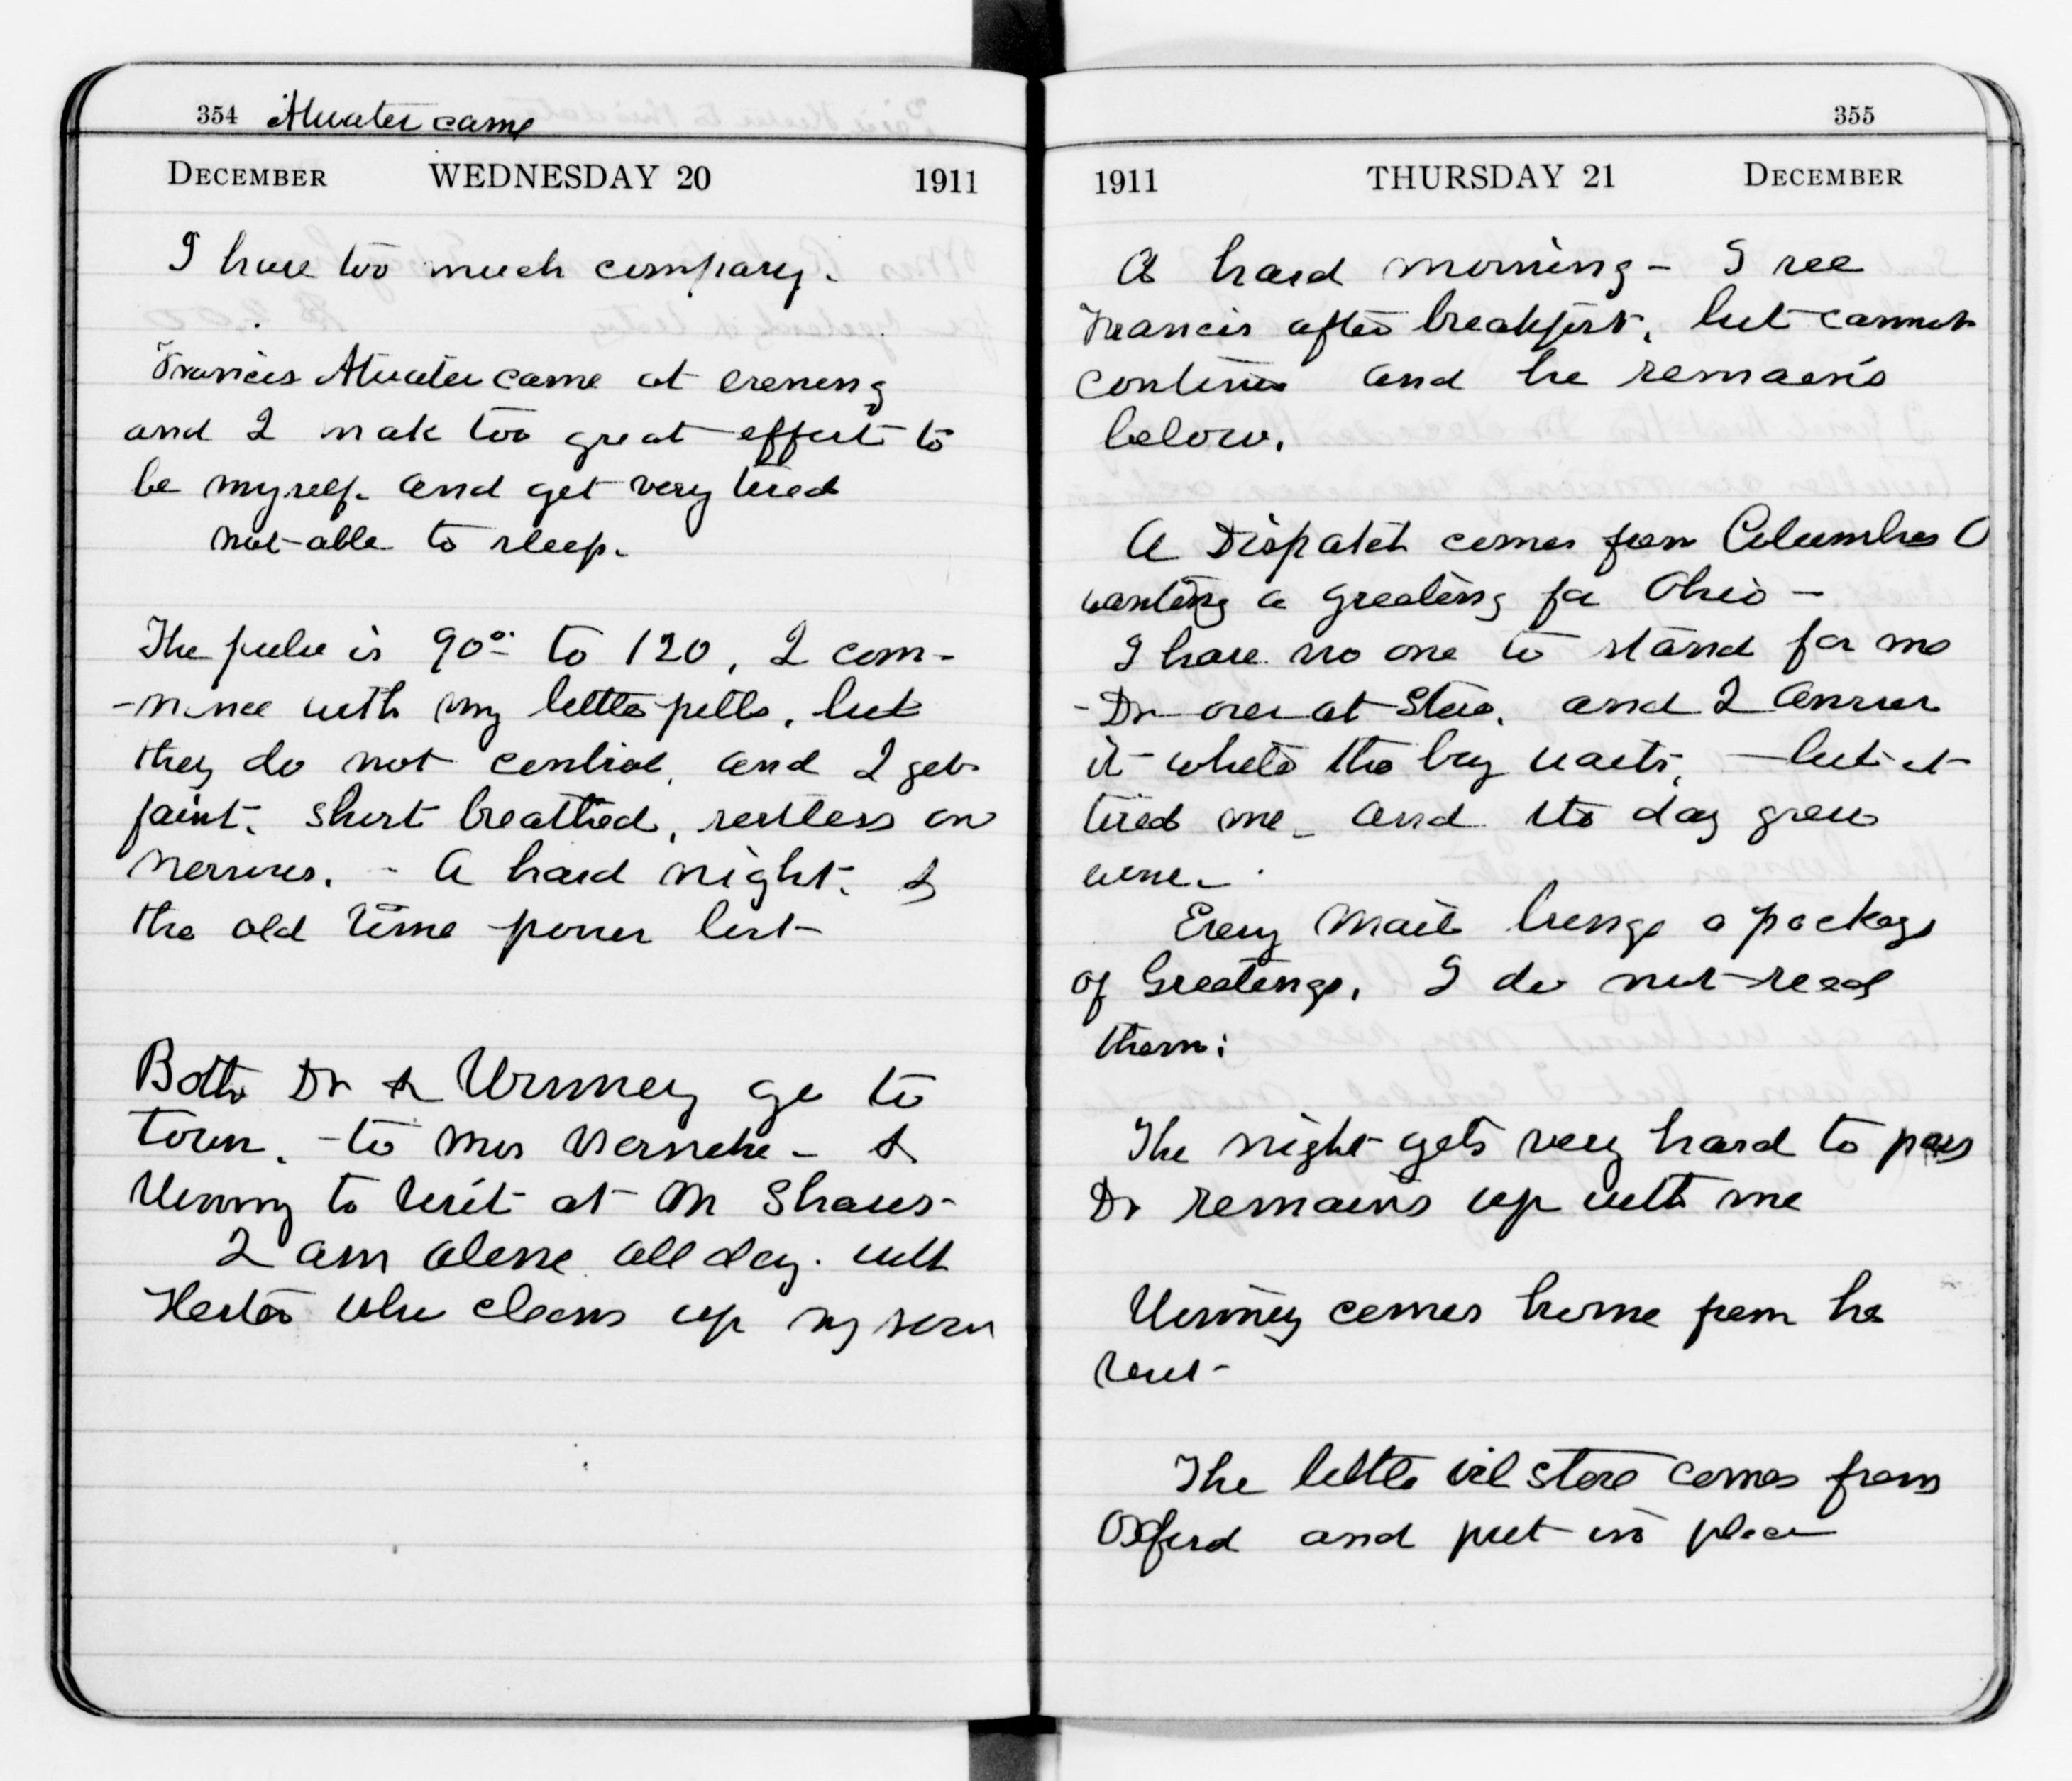 354 Atwater came
DECEMBER WEDNESDAY 20 1911
I have too much company.
Francis Atwater came at evening
and I mak too great effort to
be myself. and get very tired
not able to sleep.
The pulse is 90° to 120, I com-
-mence with my little pills, but
they do not control, and I get
faint, short breathed, restless an
nervous. - A hard night, &
the old time power lost
Both Dr & Virmey go to
town, - to Mrs Wernske - &
to visit at M Shaws -
I am alone all day. with
Hester who cleans up my room
355
1911 THURSDAY 21 DECEMBER
A hard morning - I see
Francis after breakfast, but cannot
continue and he remains
below.
A Dispatch comes from Columbus O
wanting a greeting for Ohio -
I have no one to stand for me
- Dr over at Store, and I answer
it while the boy waits, - but it
tired me - and the day grew
worse -
Every mail brings a package
of Greetings, I do not read
them:
The night gets very hard to pass
Dr remains up with me
comes home from he
visit -
The little oil stove comes from
Oxford and put in place